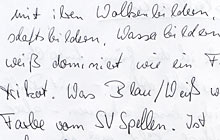 mit ihren Wolkenbildern.
schaftsbildern, Wasserbildern
weiß dominiert wie ein F
trikot. Was Blau/Weiß w
Farbe vom SV Spellen. Ist